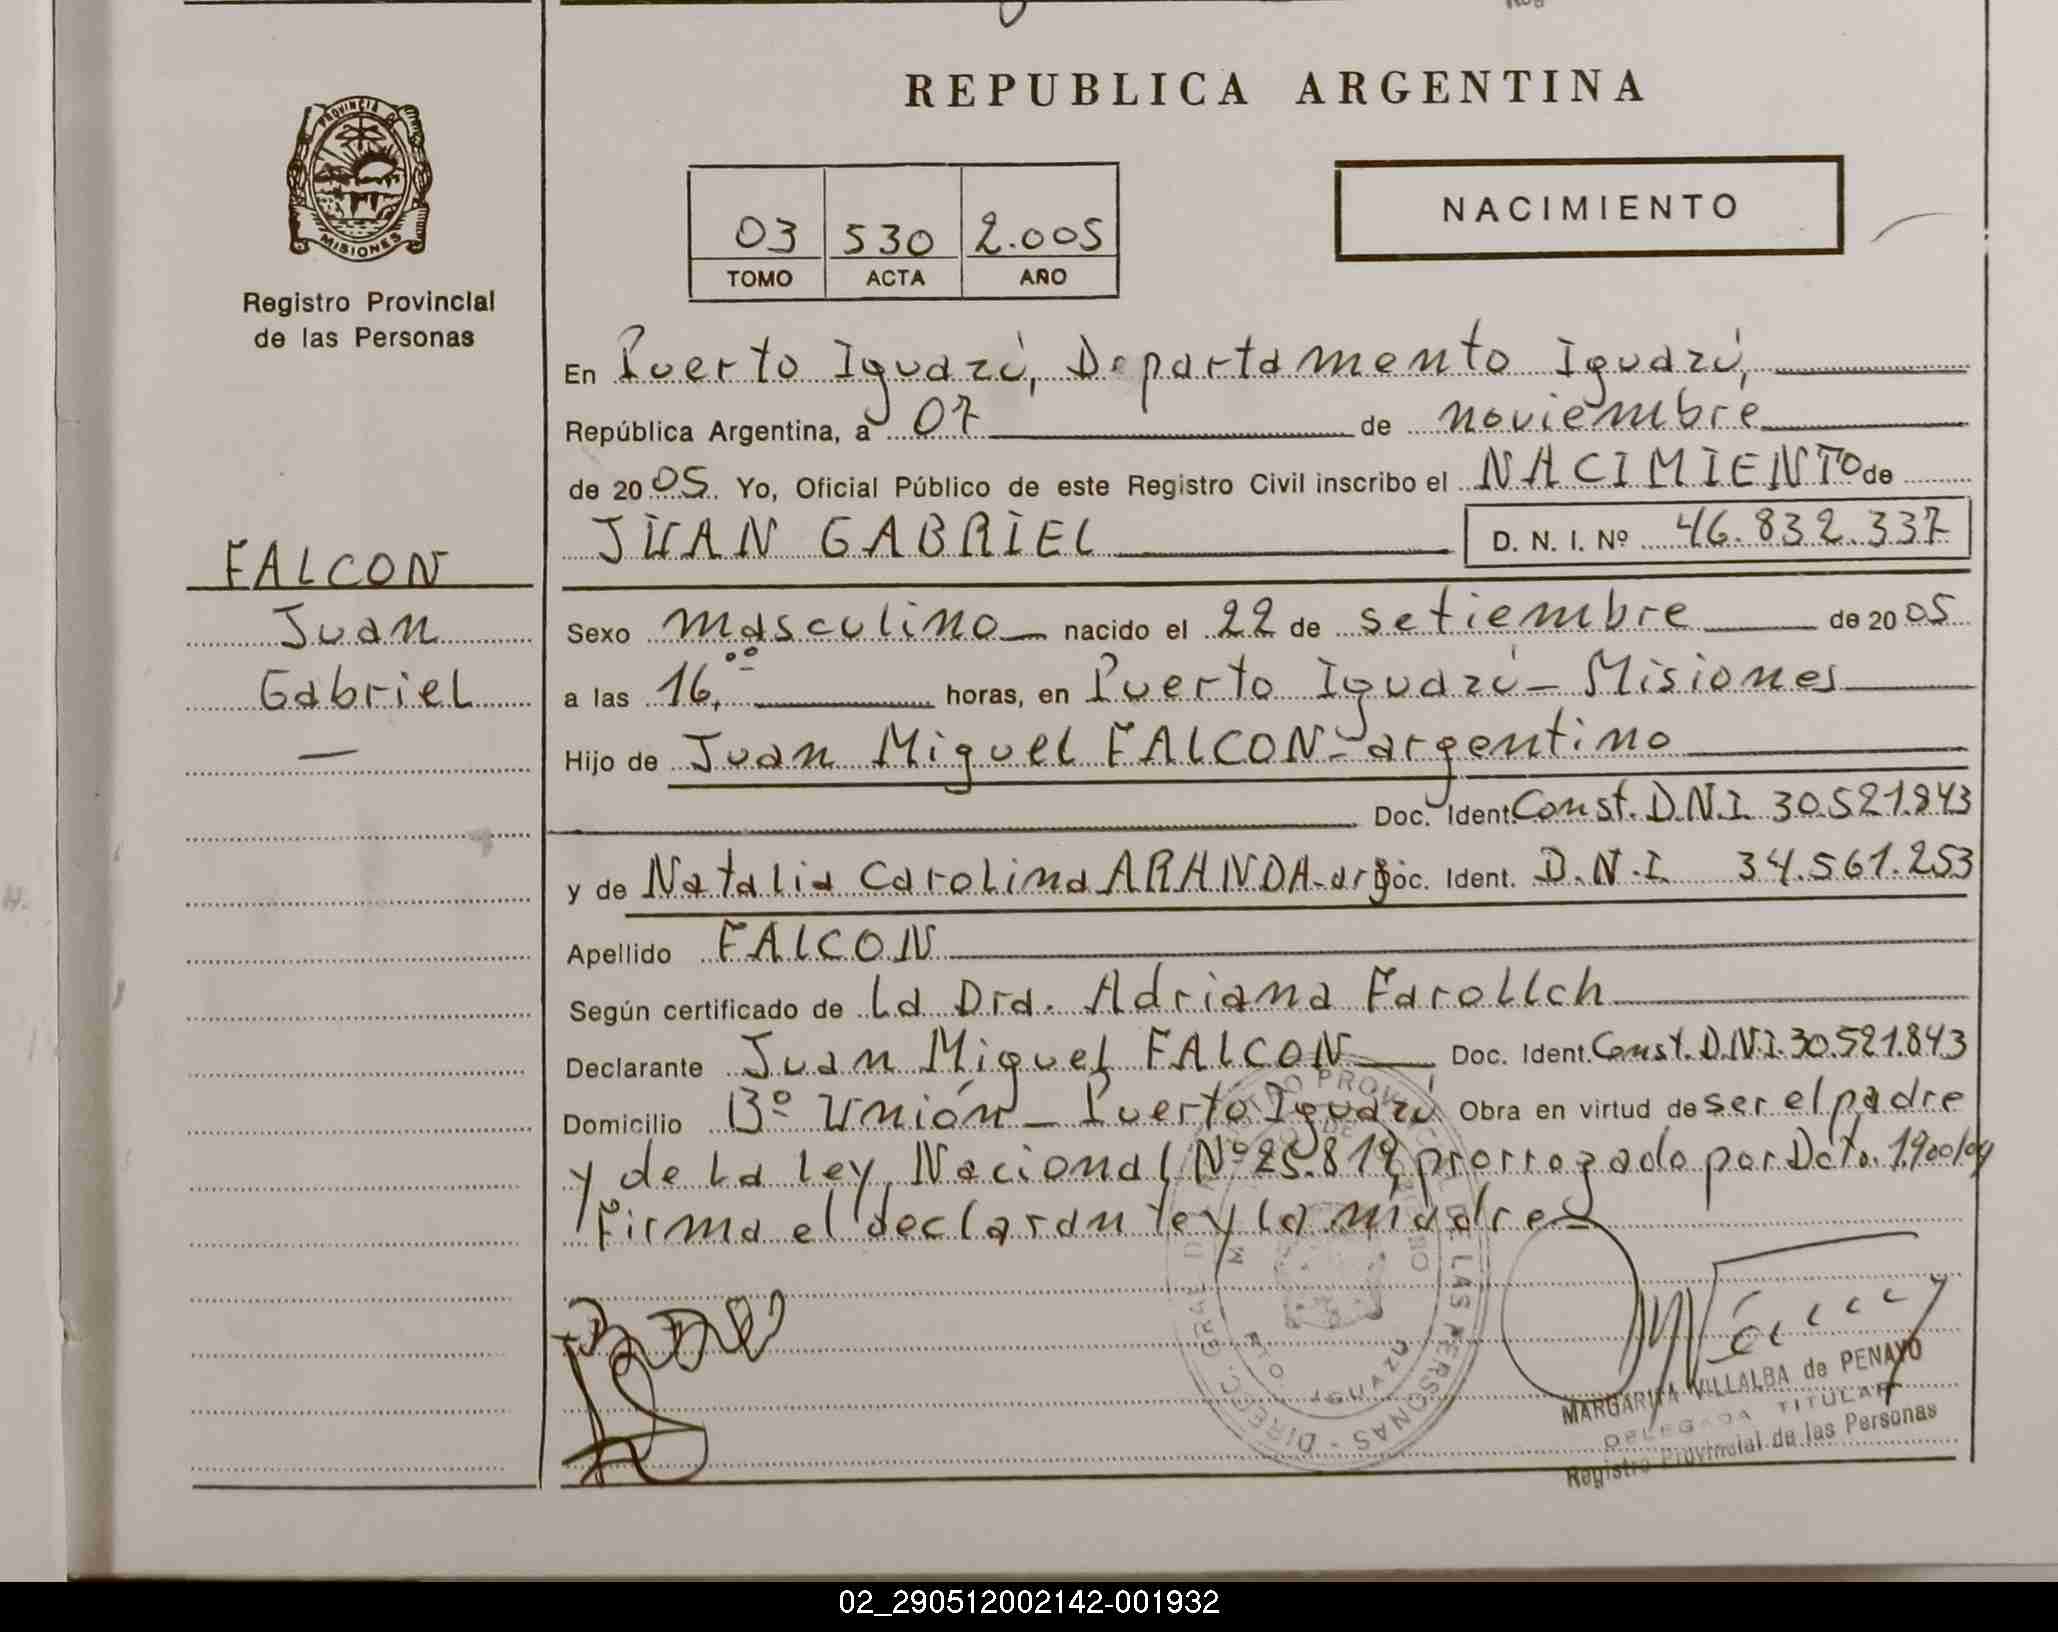 REPUBLICA ARGENTINA
PROVINCIA DE MISIONES
Registro Provincial
de las Personas
NACIMIENTO
03 530 2.005
TOMO ACTA AÑO
En Puerto Iguazú, Departamento Iguazú,
República Argentina, a 07 de noviembre
de 2005. Yo, Oficial Público de este Registro Civil inscribo el NACIMIENTO de
JUAN GABRIEL D. N. I. Nº 46.832.337
FALCON
Juan
Gabriel
Sexo masculino nacido el 22 de setiembre de 2005
a las 16,00 horas, en Puerto Iguazú - Misiones
Hijo de Juan Miguel FALCON - argentino
Doc. Ident. Const. D.N.I 30.521.843
y de Natalia Carolina ARANDA - arg Doc. Ident. D.N.I 34.561.253
Apellido FALCON
Según certificado de la Dra. Adriana Farollch
Declarante Juan Miguel FALCON Doc. Ident. Const. D.N.I. 30.521.843
Domicilio Bº Unión - Puerto Iguazú Obra en virtud de ser el padre
y de la ley Nacional Nº 25.819, prorrogado por Dcto. 1900/04
Firma el declarante y la madre
MARGARITA VILLALBA de PENAYO
DELEGADA TITULAR
Registro Provincial de las Personas
02_290512002142-001932